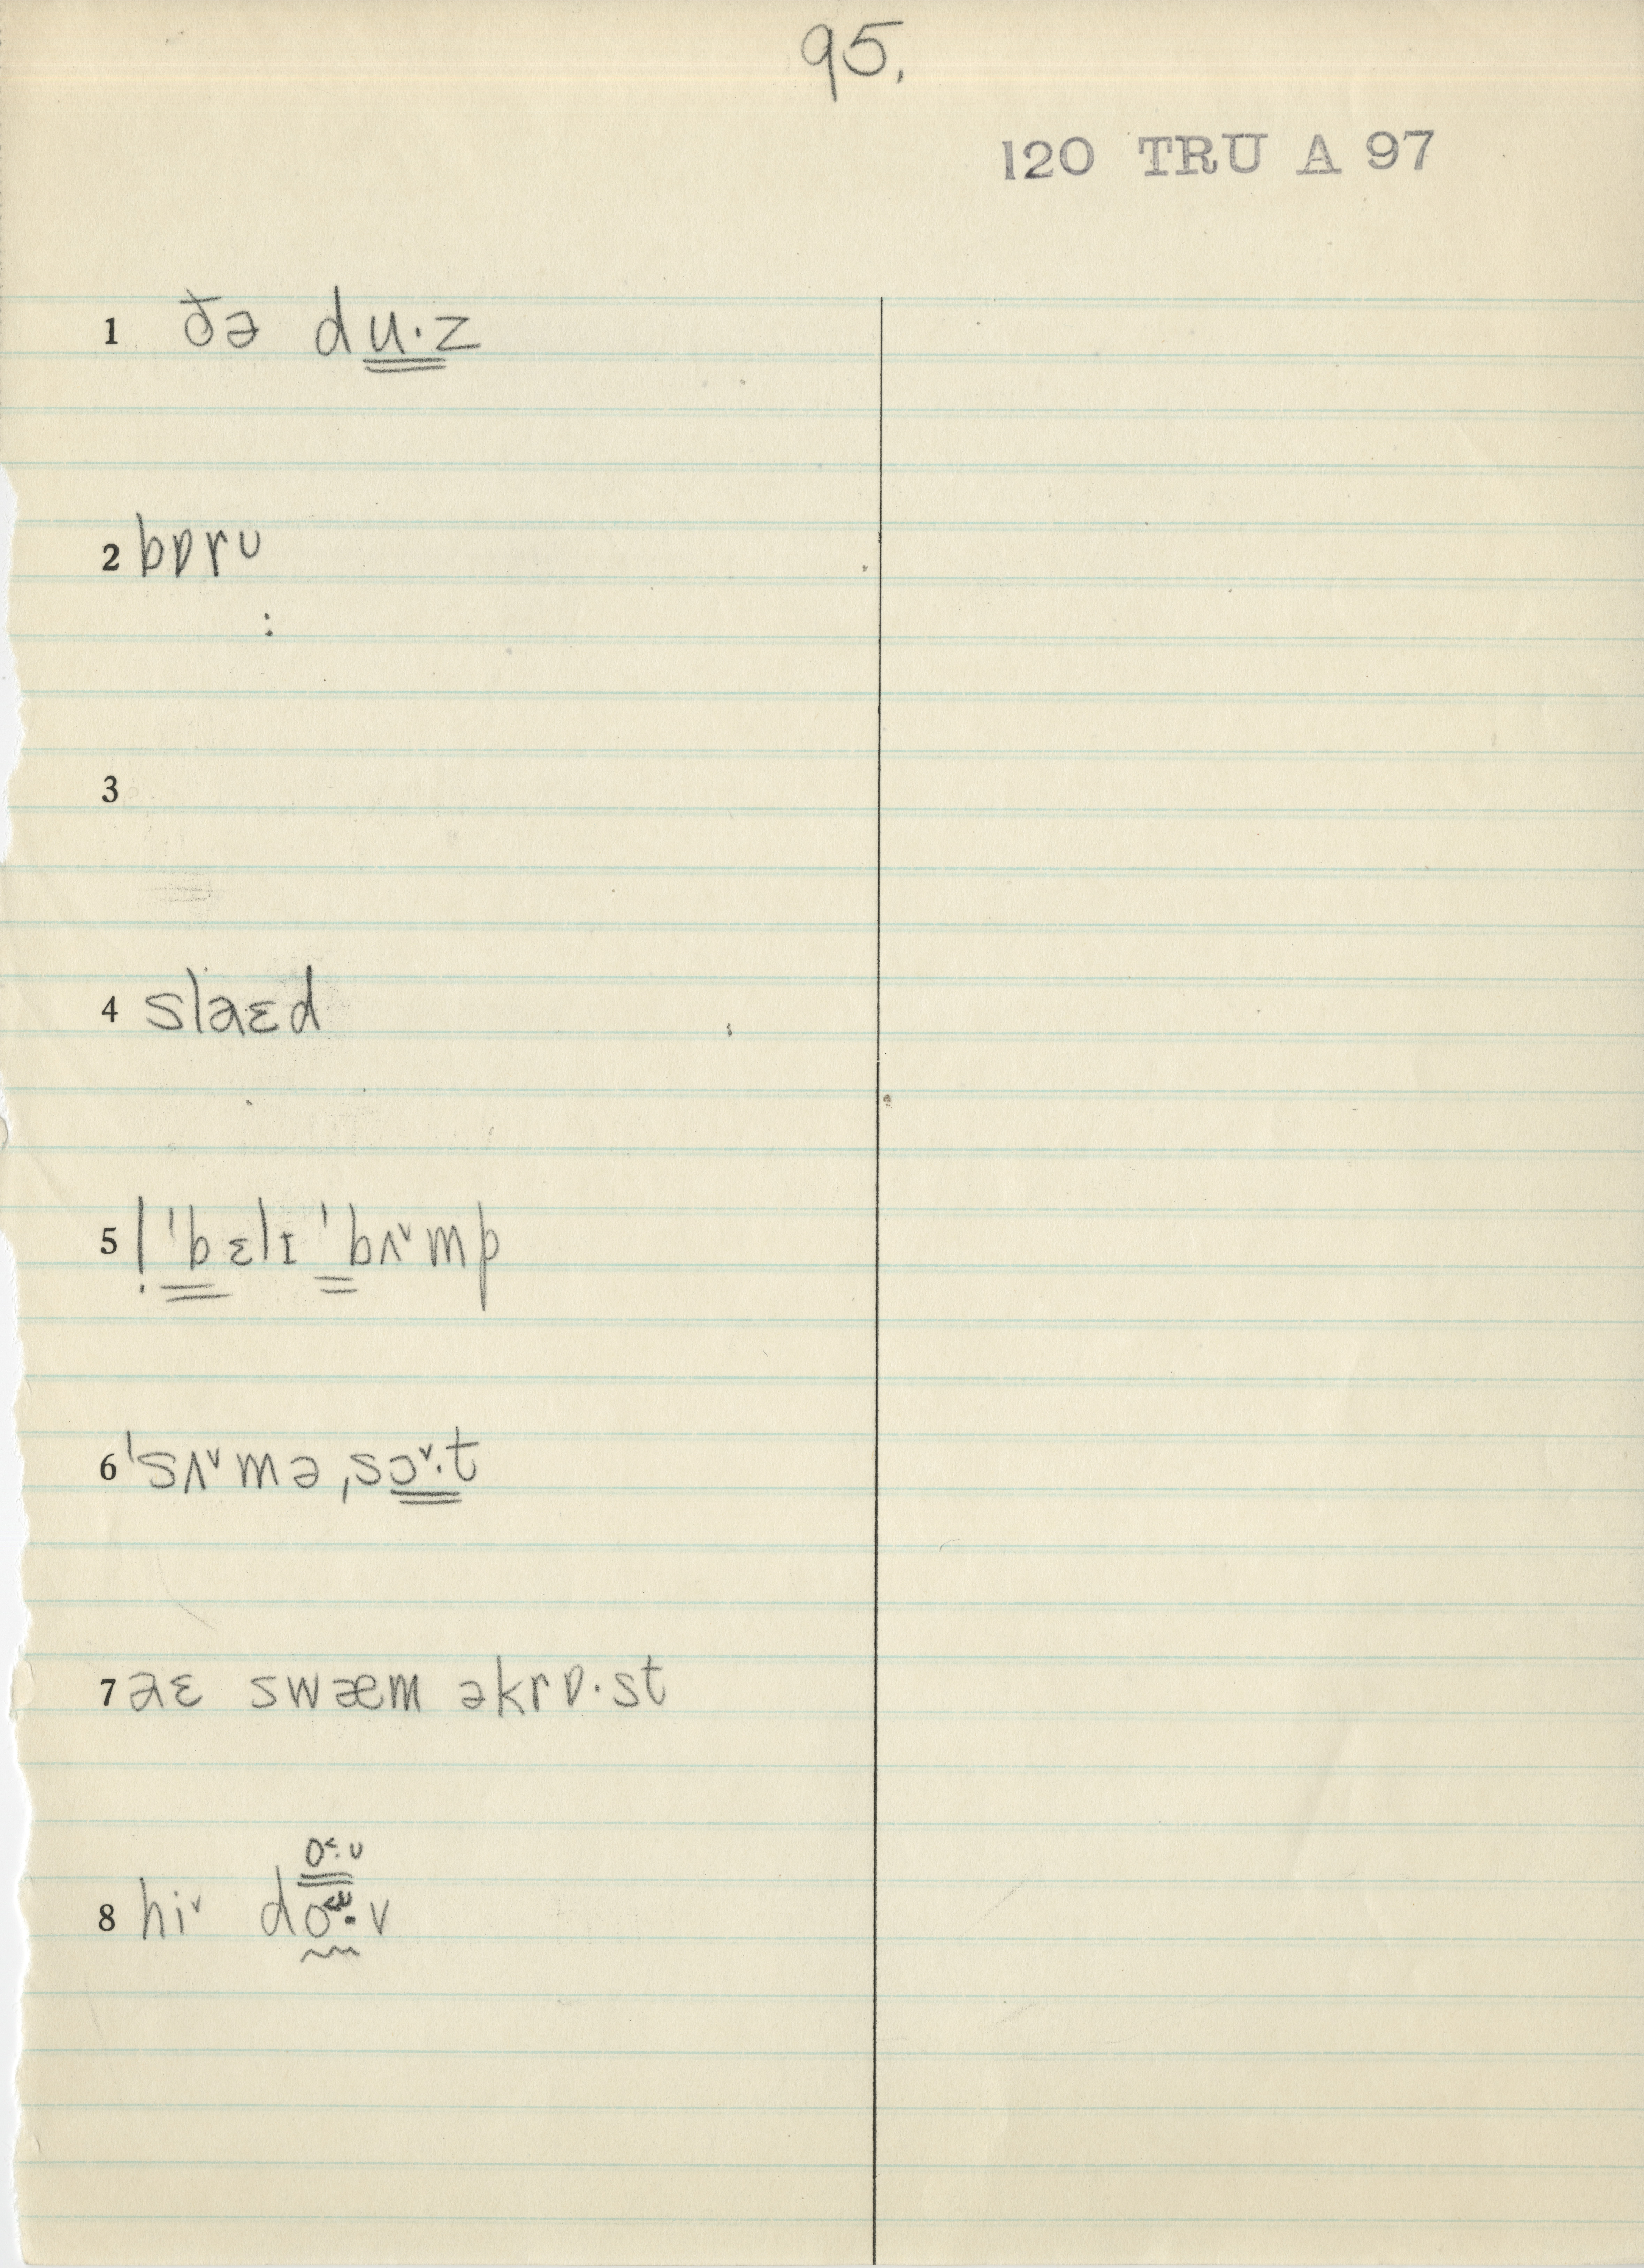 95.
120 TRU A 97
1 ðə du·z
2 bɒrᴜ
:
3
4 slaɛd
5 ! ˈbɛlɪ ˈbʌ˅mp
6 ˈsʌ˅mə ˌsɔ˅·t
7 aɛ swæm əkrɒ·st
o˂·ᴜ
8 hi˅ do˂·v